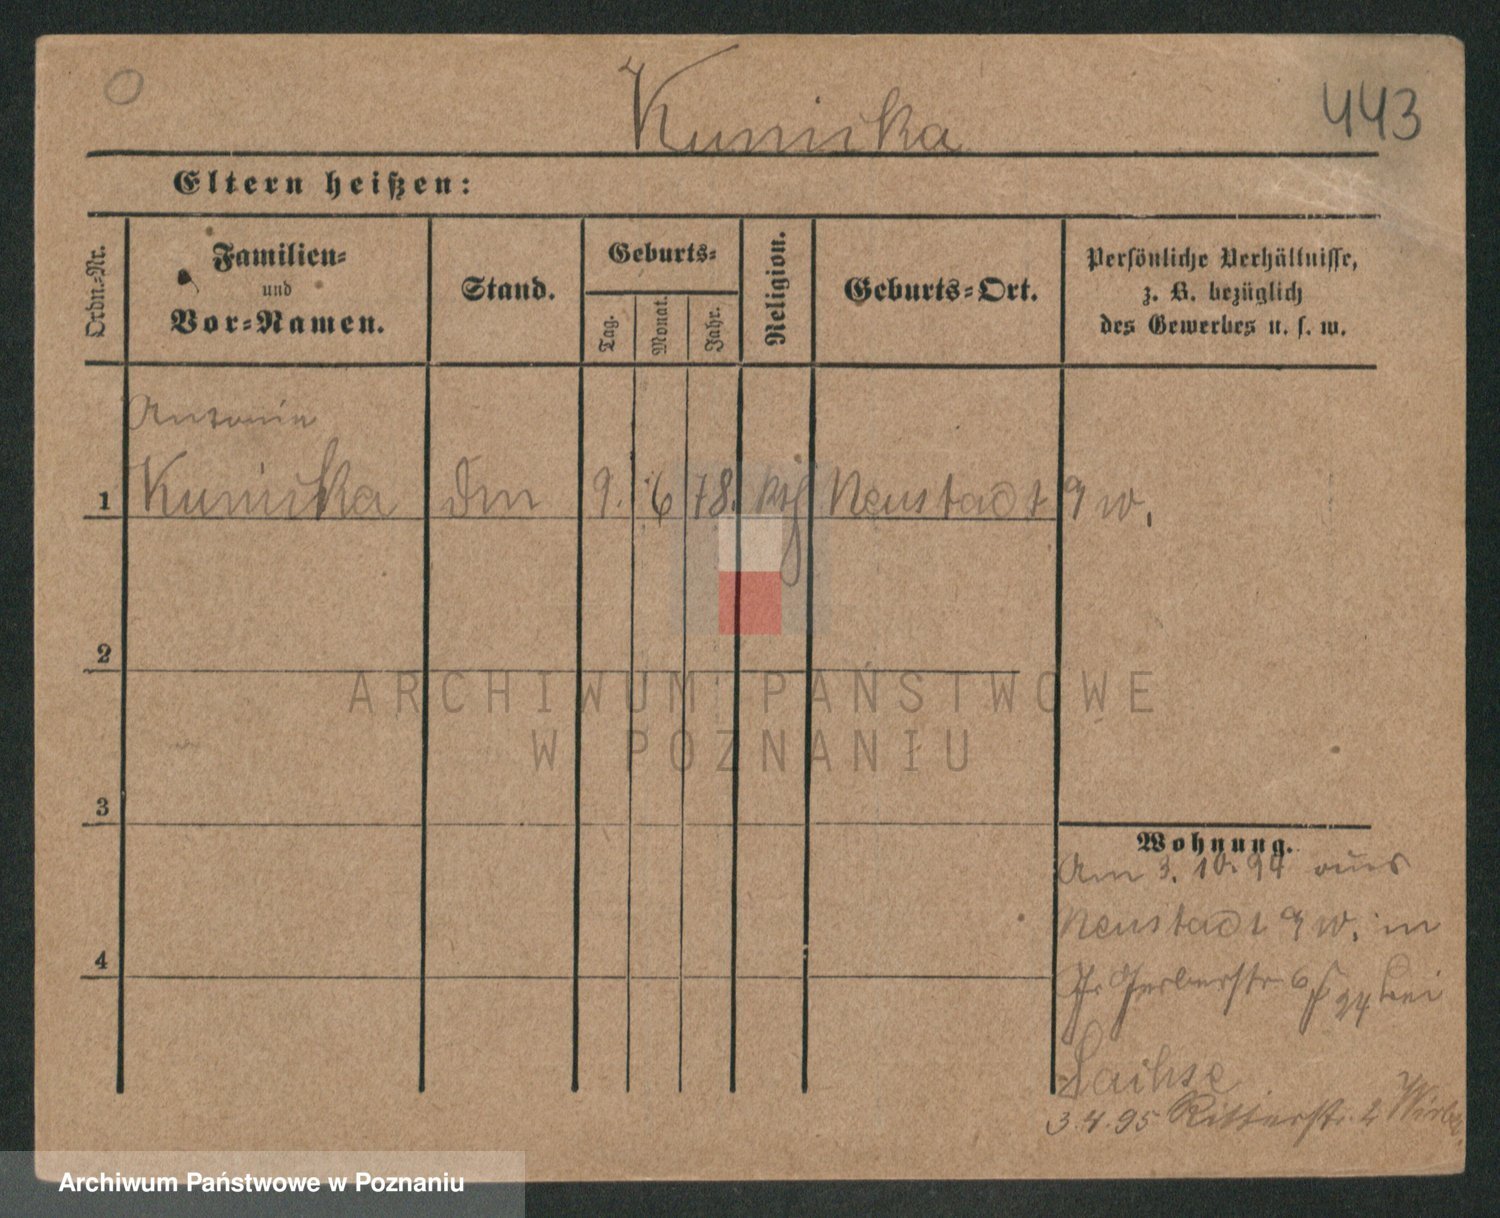 Kunicka
443
Eltern heißen:
Ordn.-Nr.
Familien-
und
Vor-Namen.
Stand.
Geburts-
Tag.
Monat.
Jahr.
Religion.
Geburts-Ort.
Persönliche Verhältnisse,
z. B. bezüglich
des Gewerbes u. s. w.
Antonie
1 Kunicka 9. 6 78. Neustadt a W.
2
3
4
Wohnung.
Am 3. 10. 94 aus
Neustadt a W. in
Gerberstr 6 bei
3.4.95 Ritterstr. 2
ARCHIWUM PAŃSTWOWE
W POZNANIU
Archiwum Państwowe w Poznaniu